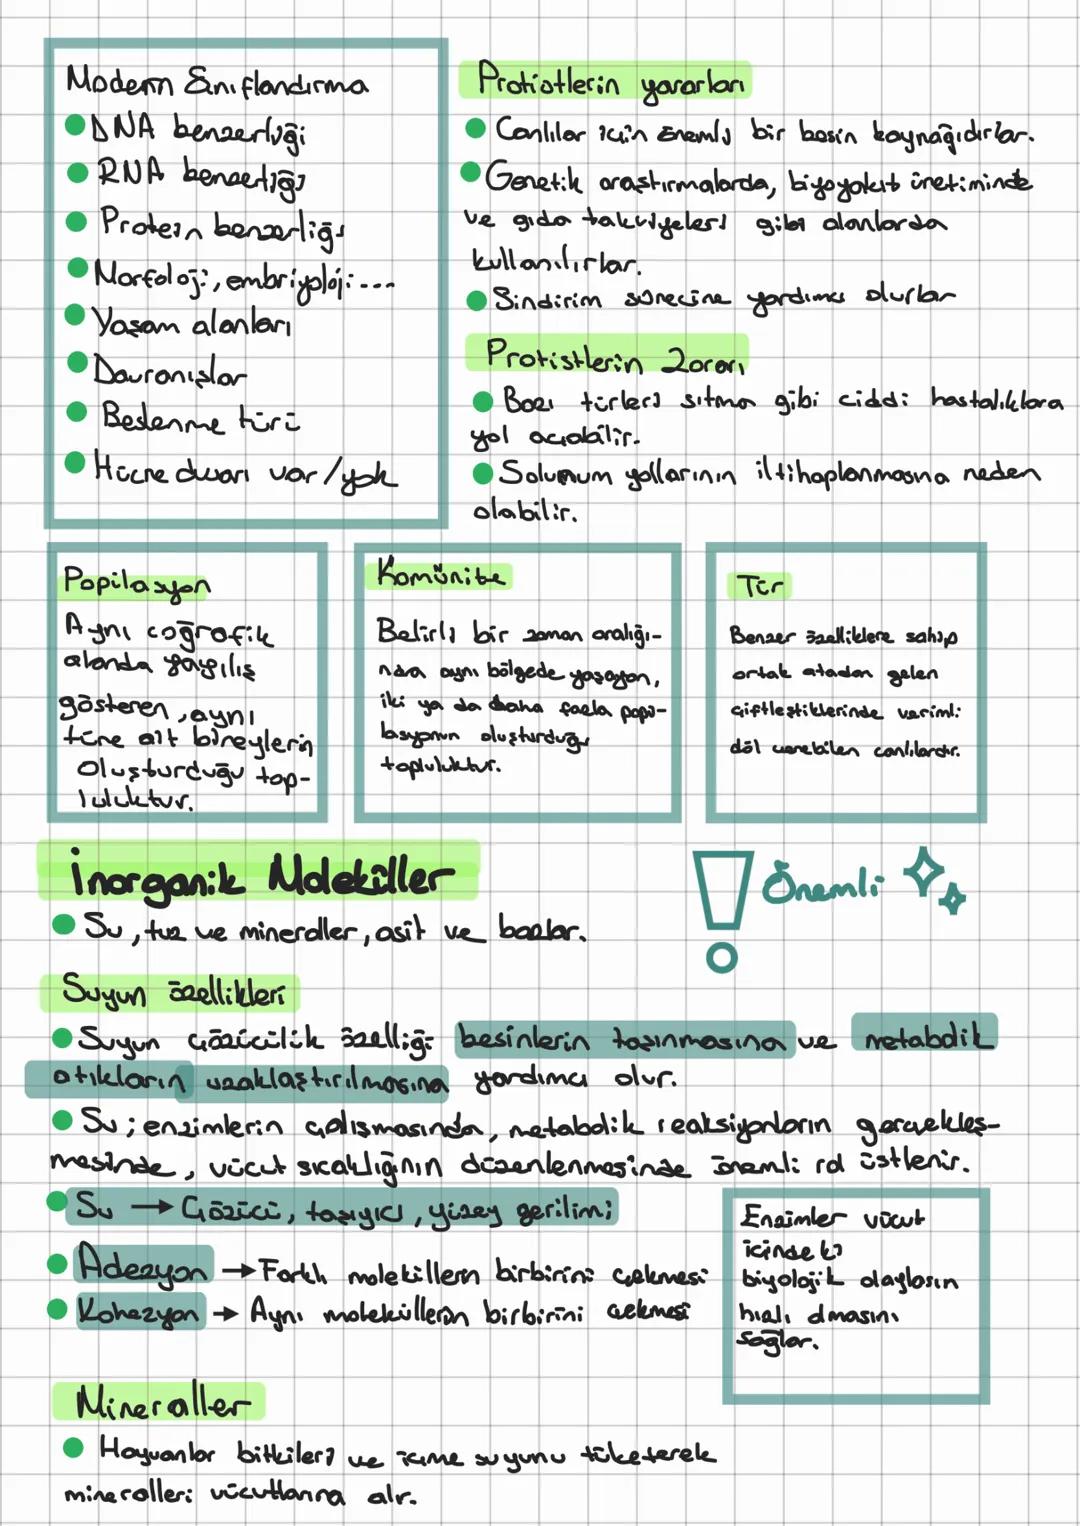 Modern Sınıflandırma
DNA benzerliği
RNA benzerliği
Protein benzerliği
Morfoloji, embriyoloji...
Yaşam alanları
Davranışlar
Beslenme türü
Hücre duvarı var/yok
Protistlerin yararları
Canlılar için önemli bir besin kaynağıdırlar.
Genetik araştırmalarda, biyoyakıt üretiminde
ve gıda takviyeleri gibi alanlarda
kullanılırlar.
Sindirim sürecine yardımcı olurlar
Protistlerin Zararı
Bazı türleri sıtma gibi ciddi hastalıklara
yol açabilir.
Solunum yollarının iltihaplanmasına neden
olabilir.
Popilasyon
Aynı coğrafik
alanda yayılış
gösteren, aynı
türe ait bireylerin
oluşturduğu top-
luluktur.
Komünite
Belirli bir zaman aralığı-
nda aynı bölgede yaşayan,
iki ya da daha fazla popü-
lasyonun oluşturduğu
topluluktur.
Tür
Benzer özelliklere sahip
ortak atadan gelen
çiftleştiklerinde verimli
döl verebilen canlılardır.
İnorganik Moleküller
Su, tuz ve mineraller, asit ve bazlar.
Önemli
Suyun özellikleri
Suyun çözücülük özelliği besinlerin taşınmasına ve metabolik
atıkların uzaklaştırılmasına yardımcı olur.
Su; enzimlerin çalışmasında, metabolik reaksiyonların gerçekleş-
mesinde, vücut sıcaklığının düzenlenmesinde önemli rol üstlenir.
Su → Çözücü, taşıyıcı, yüzey gerilimi
Adezyon → Farklı moleküllerin birbirini çekmesi
Kohezyon → Aynı moleküllerin birbirini çekmesi
Enzimler vücut
içindeki
biyolojik olayların
hızlı olmasını
sağlar.
Mineraller
Hayvanlar bitkileri ve içme suyunu tüketerek
mineralleri vücutlarına alır.